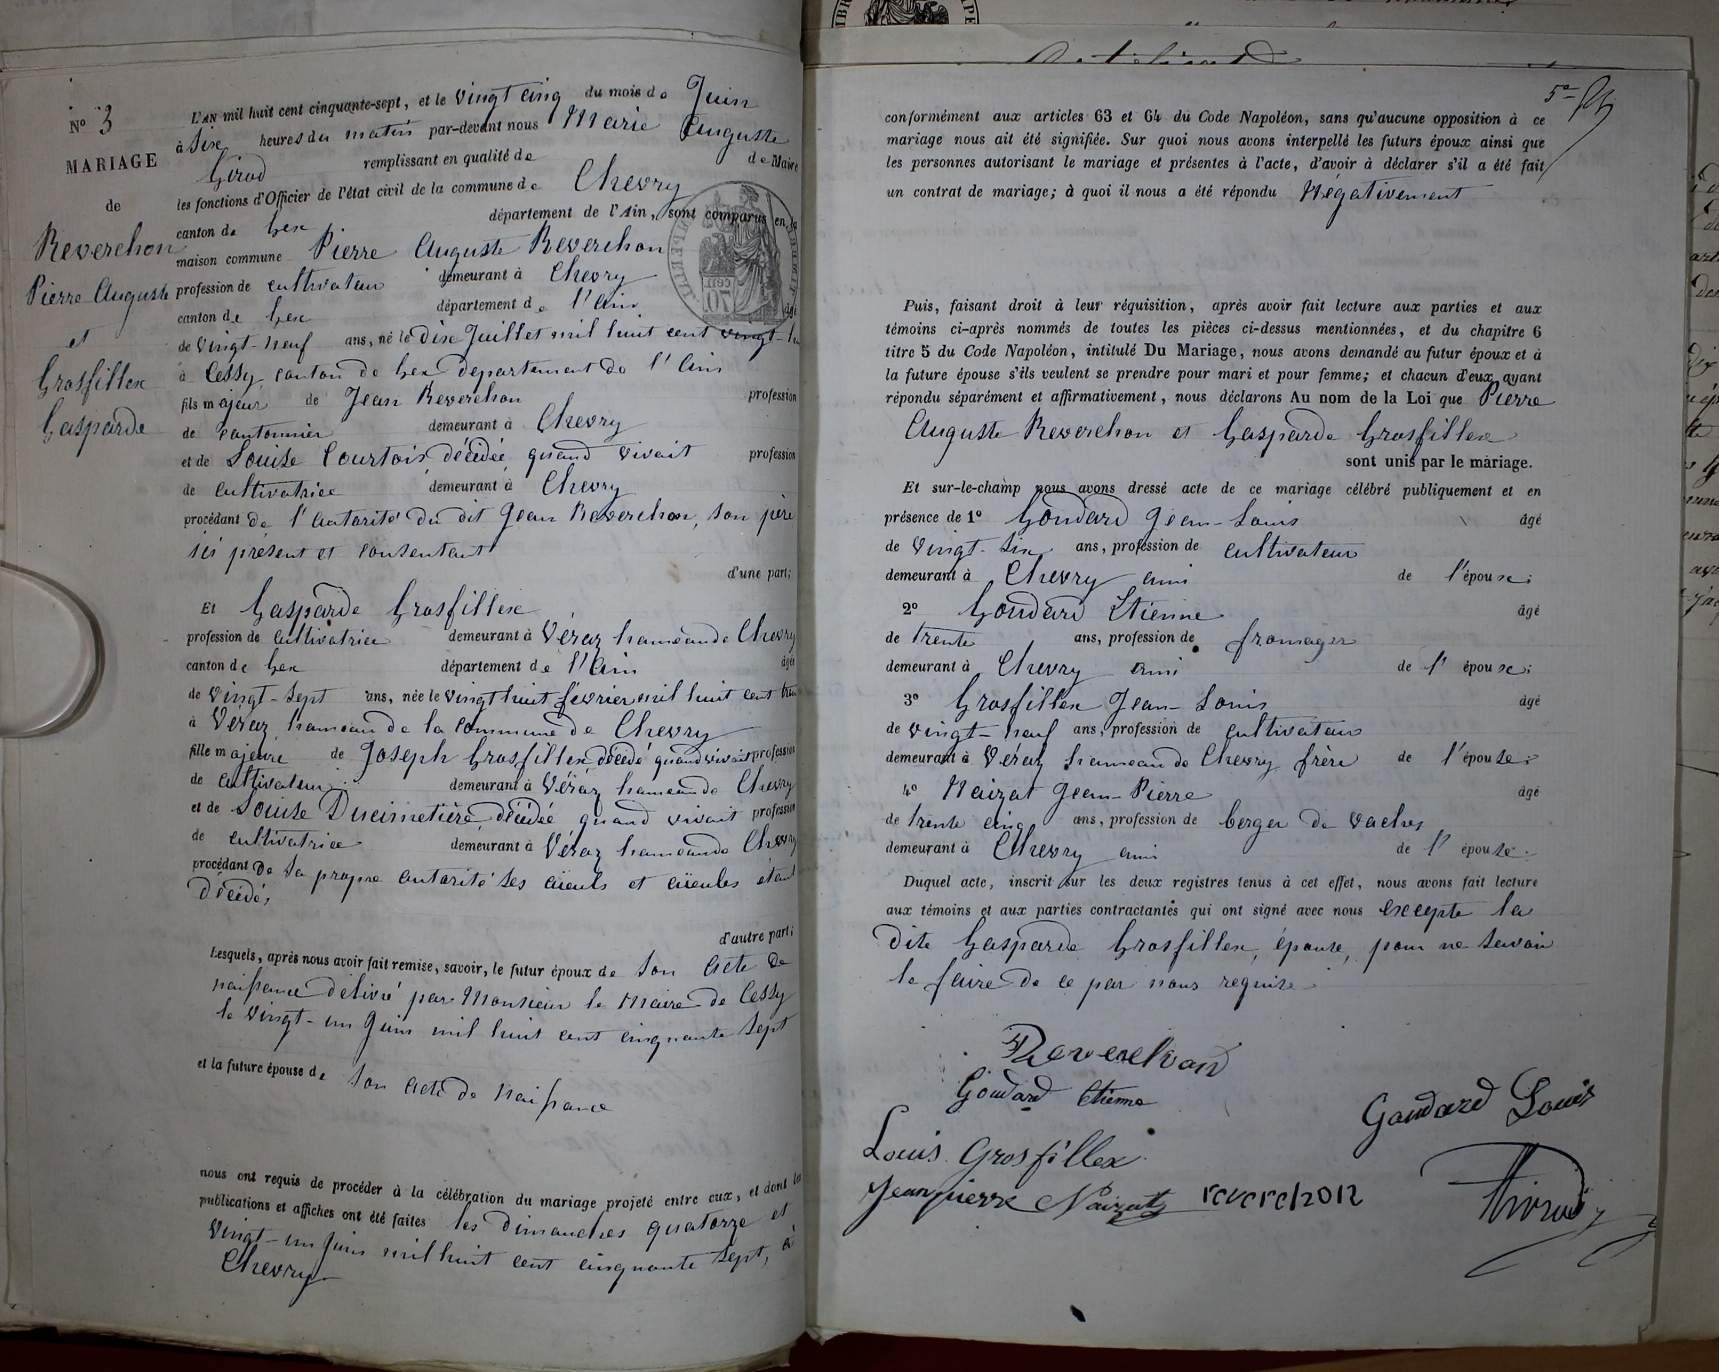 N° 3
MARIAGE
de
Reverchon
Pierre Auguste
et
Grosfillex
Gasparde
L'AN mil huit cent cinquante-sept, et le vingt cinq du mois de Juin
à six heures du matin par-devant nous Marie Auguste
Girod remplissant en qualité de de Maire
les fonctions d'Officier de l'état civil de la commune de Chevry
canton de Gex département de l'Ain, sont comparus en la
maison commune Pierre Auguste Reverchon
profession de cultivateur demeurant à Chevry
canton de Gex département de l'Ain âgé
de vingt-neuf ans, né le dix Juillet mil huit cent vingt-
à Cessy canton de Gex département de l'Ain
fils majeur de Jean Reverchon profession
de cantonnier demeurant à Chevry
et de Louise Courtois, décédée quand vivait profession
de cultivatrice demeurant à Chevry
procédant de l'autorité du dit Jean Reverchon, son père
ici présent et consentant
d'une part;
Et Gasparde Grosfillex
profession de cultivatrice demeurant à Véraz hameau de Chevry
canton de Gex département de l'Ain âgée
de vingt-sept ans, née le vingt huit février mil huit cent
à Véraz hameau de la commune de Chevry
fille majeure de Joseph Grosfillex décédé quand vivait profession
de cultivateur demeurant à Véraz hameau de Chevry
et de Louise Ducimetière, décédée quand vivait profession
de cultivatrice demeurant à Véraz hameau de Chevry
procédant de sa propre autorité ses aïeuls et aïeules étant
décédés,
d'autre part;
Lesquels, après nous avoir fait remise, savoir, le futur époux de son acte de
naissance délivré par Monsieur le Maire de Cessy
le vingt-un Juin mil huit cent cinquante sept
et la future épouse de son acte de naissance
nous ont requis de procéder à la célébration du mariage projeté entre eux, et dont les
publications et affiches ont été faites les dimanches quatorze et
vingt-un Juin mil huit cent cinquante sept, à
Chevry
5e
conformément aux articles 63 et 64 du Code Napoléon, sans qu'aucune opposition à ce
mariage nous ait été signifiée. Sur quoi nous avons interpellé les futurs époux ainsi que
les personnes autorisant le mariage et présentes à l'acte, d'avoir à déclarer s'il a été fait
un contrat de mariage; à quoi il nous a été répondu Négativement
Puis, faisant droit à leur réquisition, après avoir fait lecture aux parties et aux
témoins ci-après nommés de toutes les pièces ci-dessus mentionnées, et du chapitre 6
titre 5 du Code Napoléon, intitulé Du Mariage, nous avons demandé au futur époux et à
la future épouse s'ils veulent se prendre pour mari et pour femme; et chacun d'eux ayant
répondu séparément et affirmativement, nous déclarons Au nom de la Loi que Pierre
Auguste Reverchon et Gasparde Grosfillex
sont unis par le mariage.
Et sur-le-champ nous avons dressé acte de ce mariage célébré publiquement et en
présence de 1° Goudard Jean-Louis âgé
de vingt-six ans, profession de cultivateur
demeurant à Chevry ami de l'épouse;
2° Goudard Etienne âgé
de trente ans, profession de fromager
demeurant à Chevry ami de l'épouse;
3° Grosfillex Jean-Louis âgé
de vingt-neuf ans, profession de cultivateur
demeurant à Véraz hameau de Chevry frère de l'épouse;
4° Naizat Jean-Pierre âgé
de trente cinq ans, profession de berger de vaches
demeurant à Chevry ami de l'épouse.
Duquel acte, inscrit sur les deux registres tenus à cet effet, nous avons fait lecture
aux témoins et aux parties contractantes qui ont signé avec nous excepté la
dite Gasparde Grosfillex, épouse, pour ne savoir
le faire de ce par nous requise.
Reverchon
Goudard Etienne
Goudard Louis
Louis Grosfillex
Jean pierre Naizat reverchon
Girod